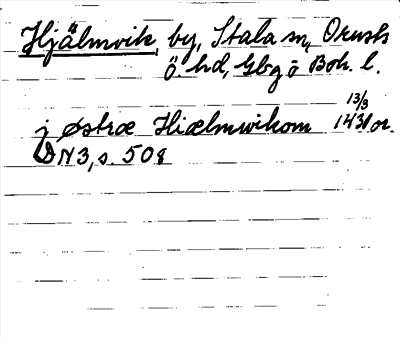 Hjälmvik by, Stala sn, Orusts
ö. hd, Gbg o Boh. l.
j Østræ Hiælmwikom 13/3 1431 or.
DN 3, s. 508